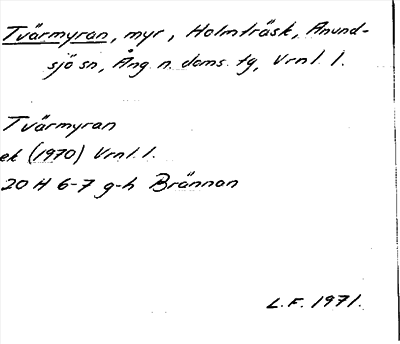 Tvärmyran, myr, Holmträsk, Anund-
sjö sn, Ång. n. doms. tg, Vrnl. l.
Tvärmyran
ek (1970) Vrnl. l.
20 H 6-7 g-h Brännan
L.F. 1971.